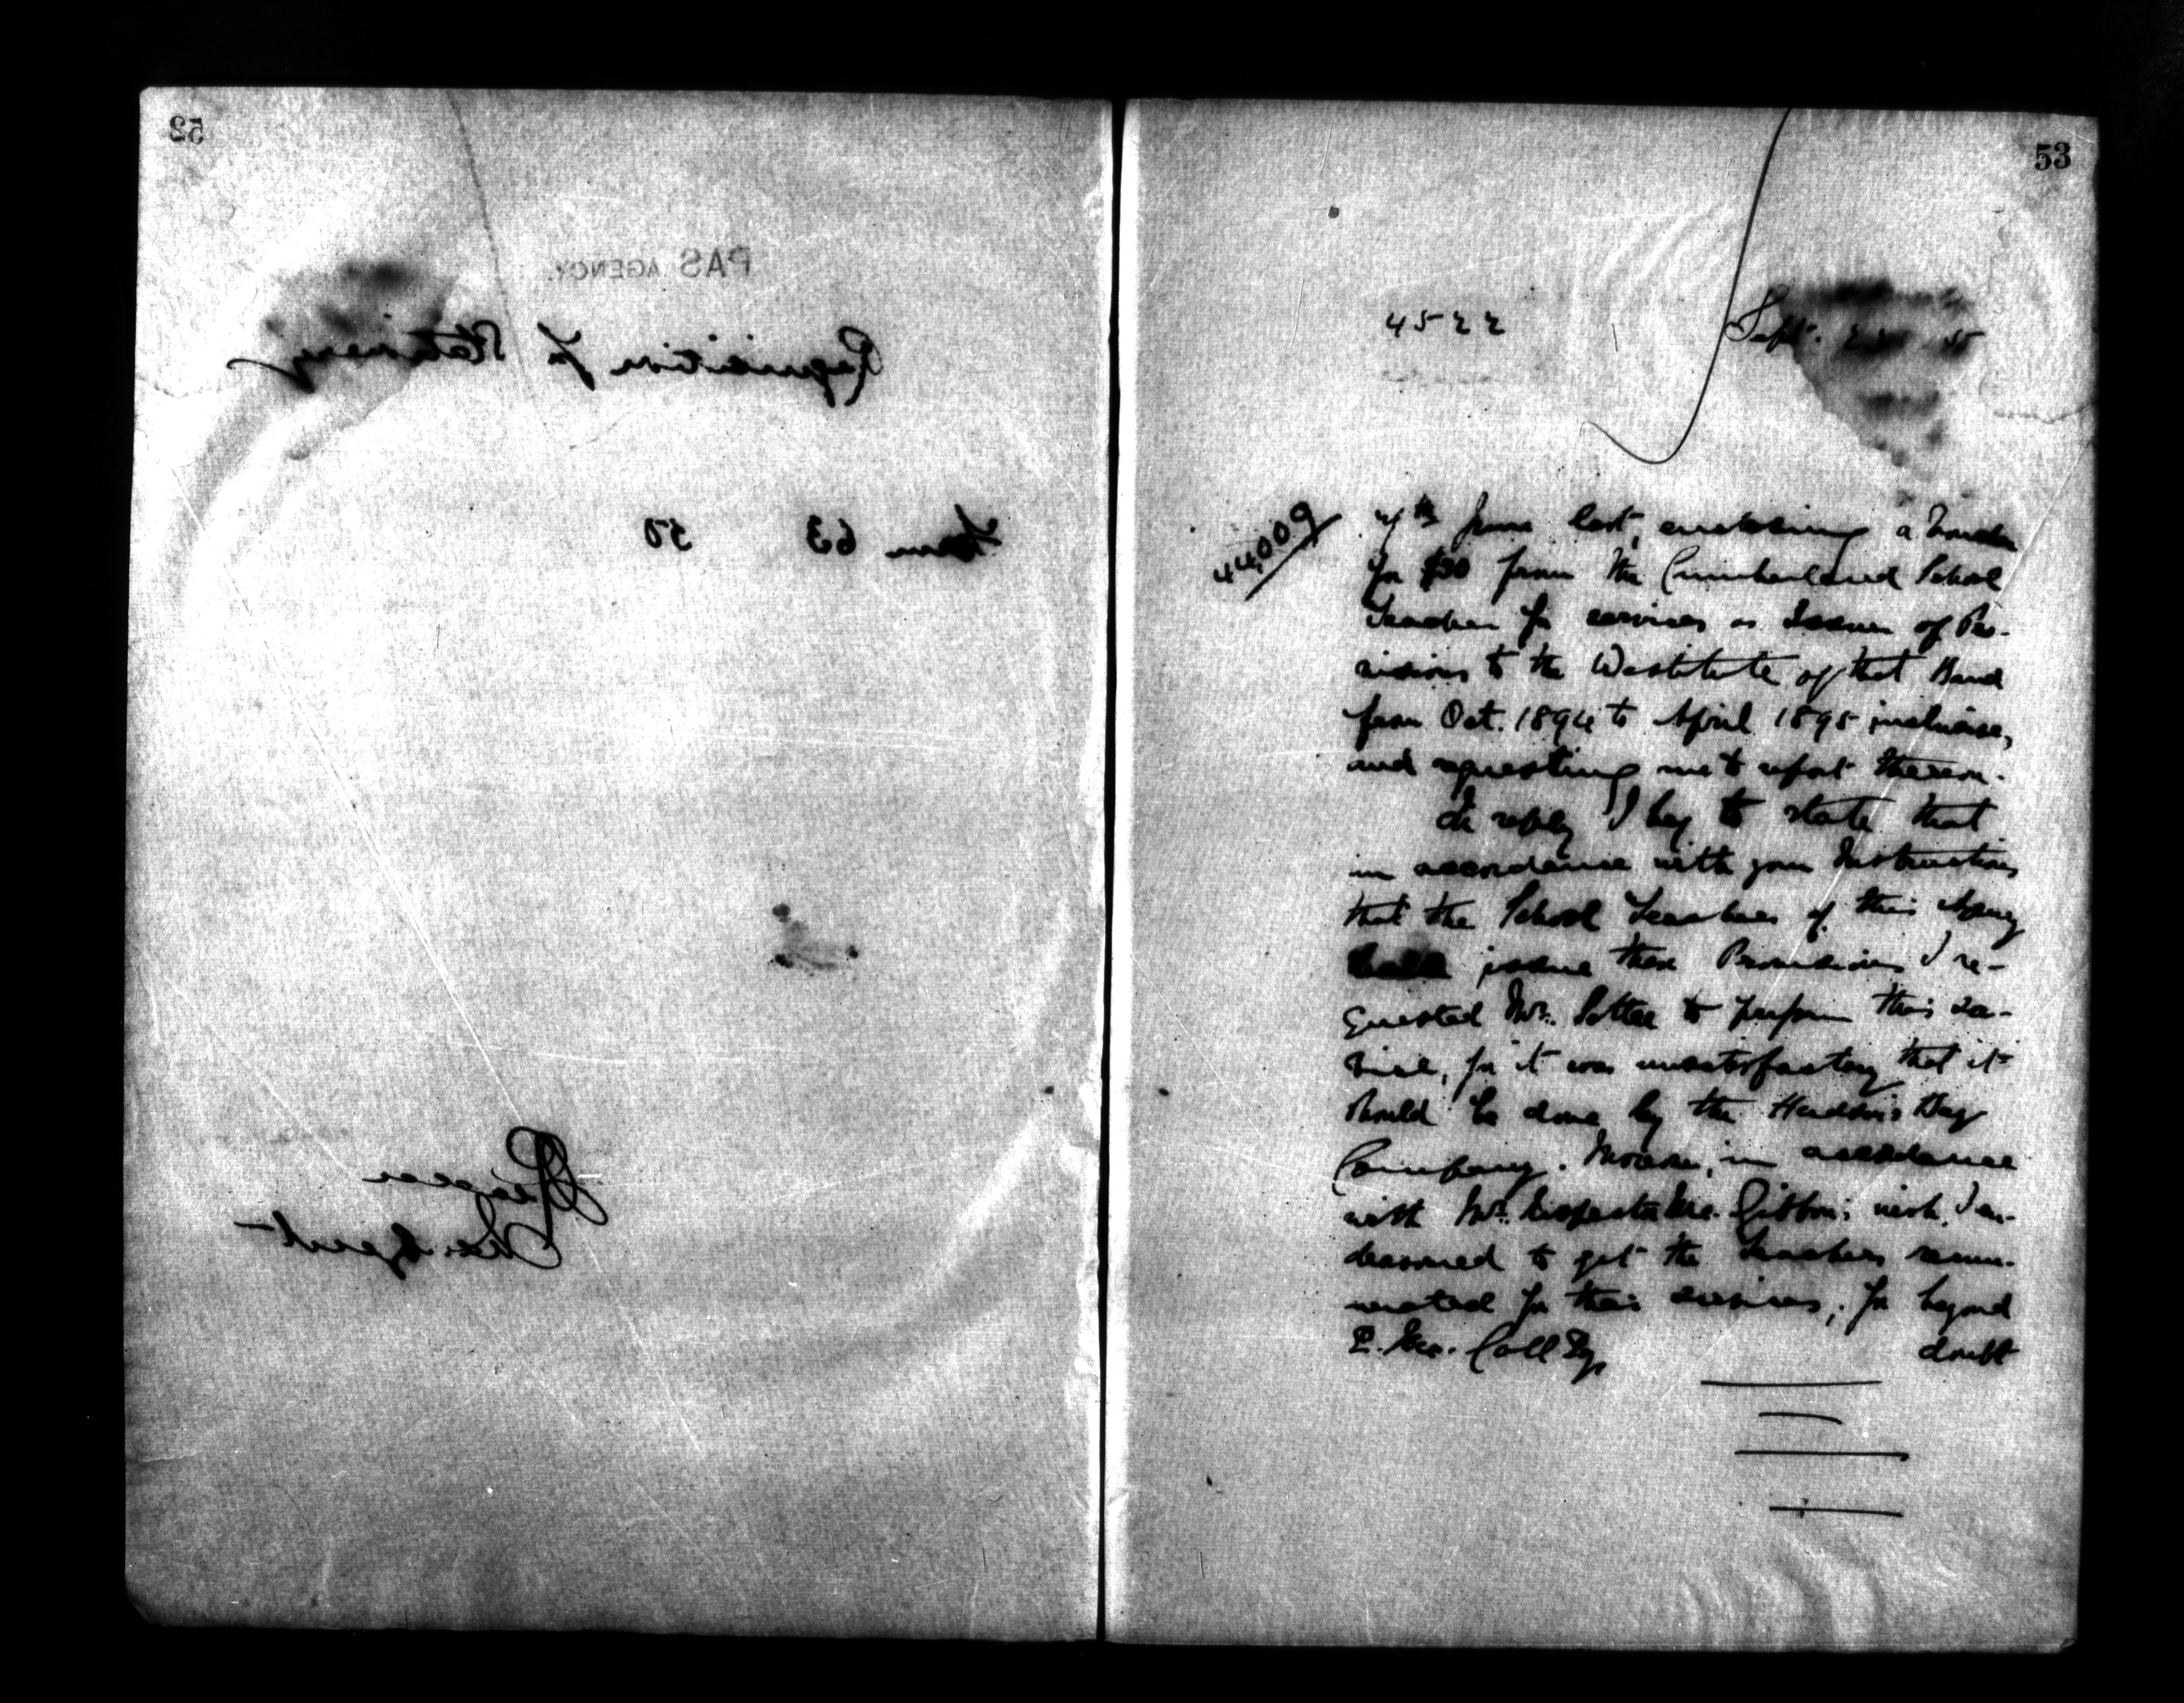 52
PAS AGENCY.
Requisition for Stationery
Form 63 50
Ind. Agent
53
4522 Sept.
44,009
7th June last, enclosing a Voucher
for $30 from the Cumberland School
Teacher for services as Issuer of Pro-
visions to the Destitute of that Band
from Oct. 1894 to April 1895 inclusive,
and requesting me to report thereon.
In reply I beg to state that
in accordance with your Instructions
that the School Teachers of this Agency
issue these Provisions I re-
quested Mr. Settee to perform this ser-
vice, for it was unsatisfactory that it
should be done by the Hudson's Bay
Company. Moreover, in accordance
with Mr. Inspector Mc.Gibbon's wish, I en-
deavoured to get the Teachers remu-
nerated for their services, for beyond
E. Mc. Coll Esq. doubt